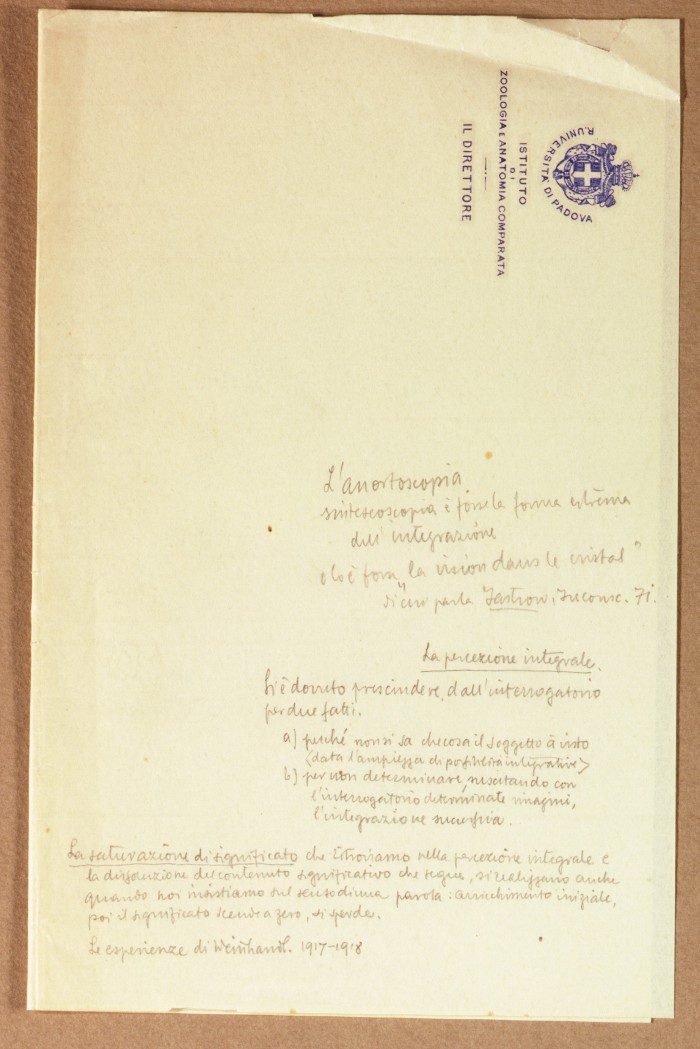 R. UNIVERSITÀ DI PADOVA
ISTITUTO
DI
ZOOLOGIA E ANATOMIA COMPARATA
IL DIRETTORE
L'anortoscopia
è forse la forma estrema
dell'integrazione
o lo è forse "la vision dans le cristal"
di cui parla Jastrow, Inconsc. 71.
La percezione integrale.
Si è dovuto prescindere dall'interrogatorio
per due fatti.
a) perché non si sa che cosa il soggetto à visto
(data l'ampiezza di possibilità integrative)
b) per non determinare, suscitando con
l'interrogatorio determinate imagini,
l'integrazione successiva.
La saturazione di significato che troviamo nella percezione integrale e
la dissoluzione del contenuto significativo che segue, si realizzano anche
quando noi insistiamo sul senso di una parola: arricchimento iniziale,
poi il significato scende a zero, si sperde.
Le esperienze di Weinhandl. 1917-1918